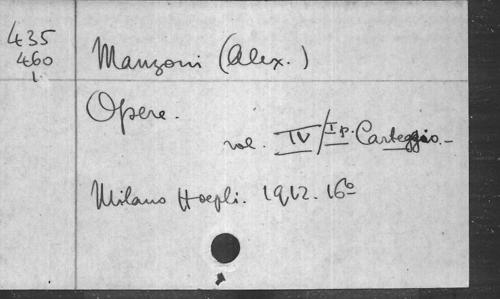 435
460
1.
Manzoni (Alex.)
Opere.
vol. IV/I p. Carteggio.-
Milano Hoepli. 1912. 16º